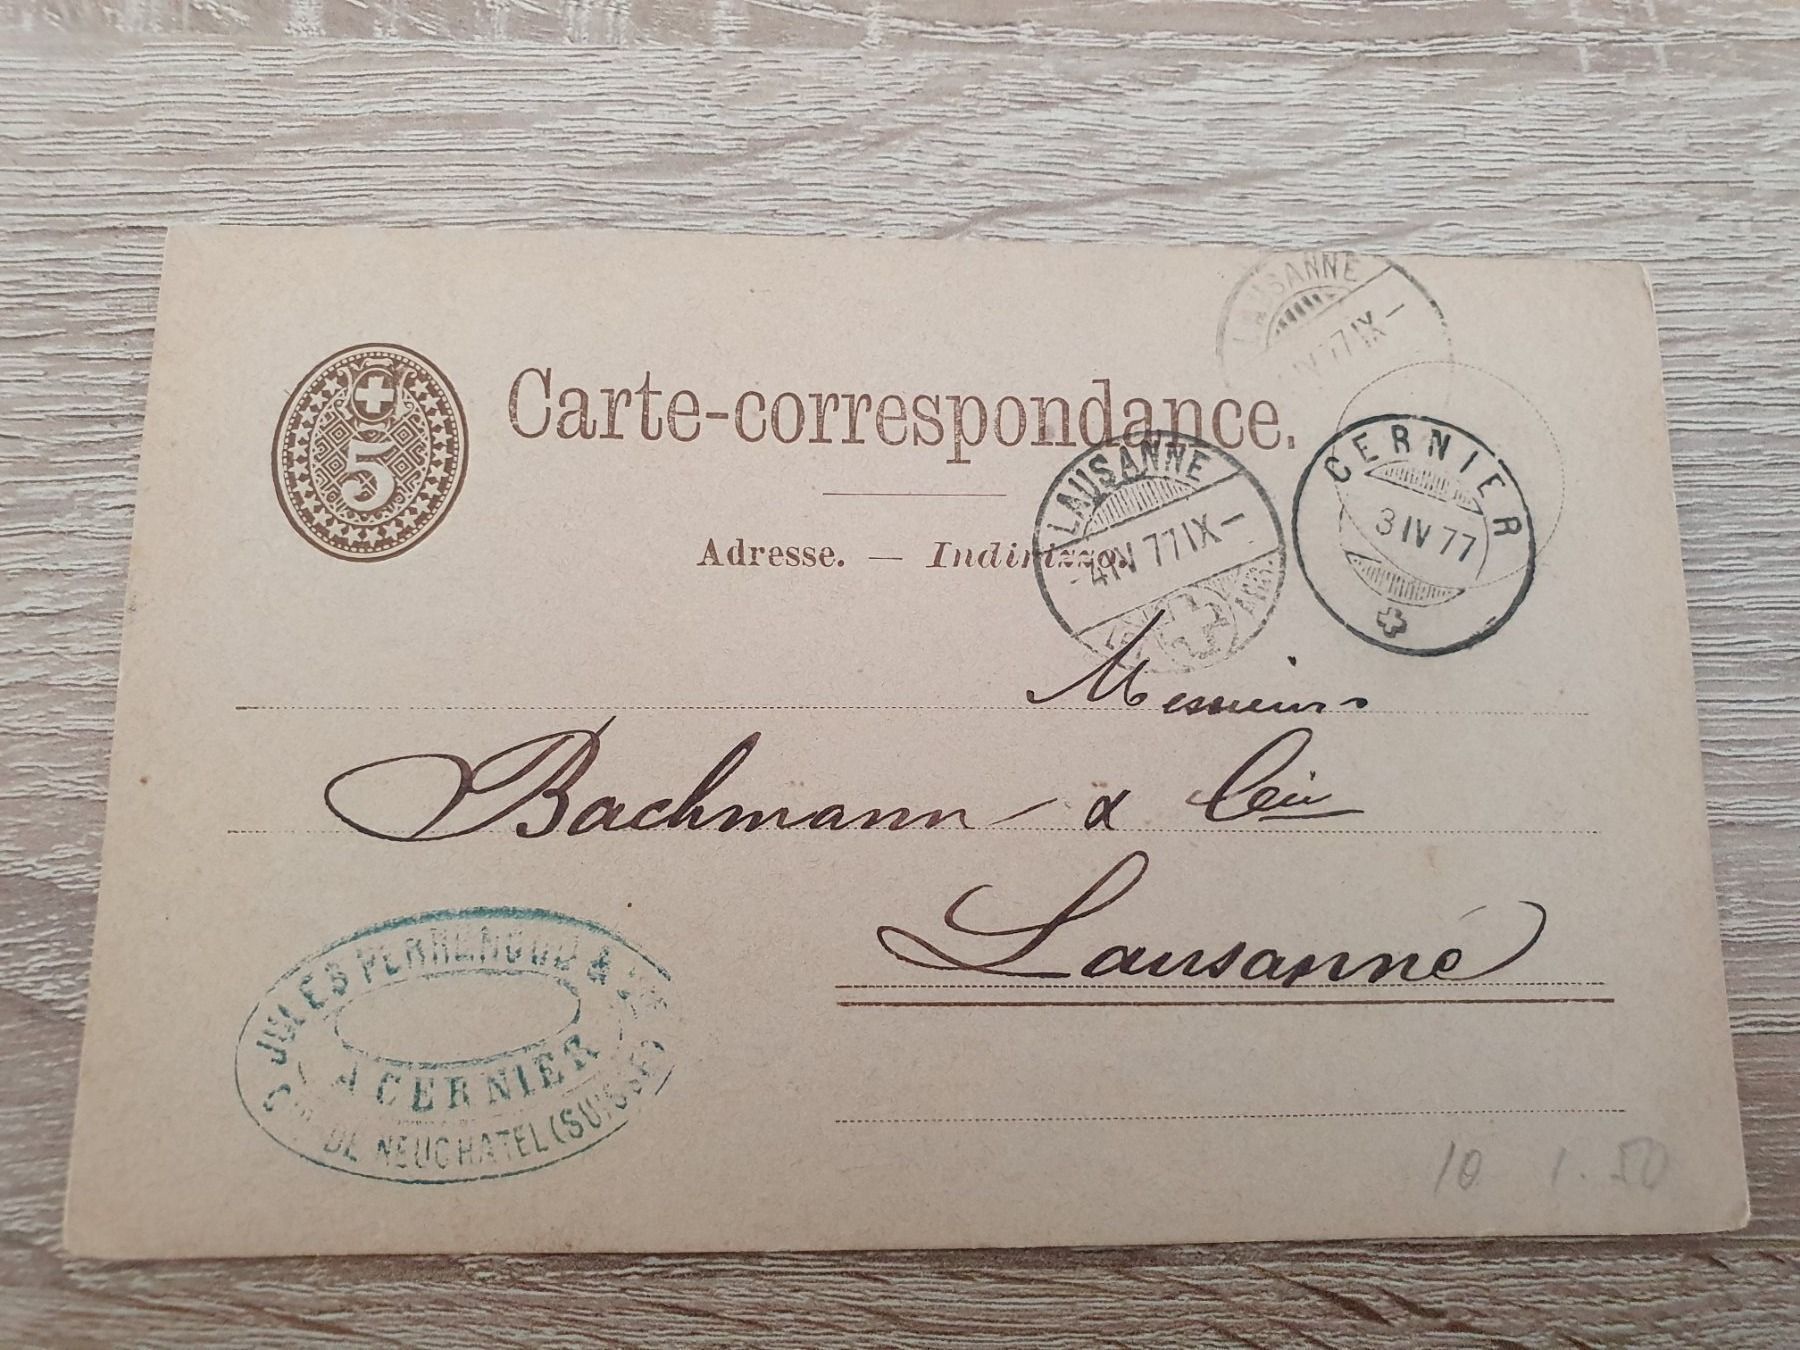 LAUSANNE
IV 77 IX –
5
Carte-correspondance.
LAUSANNE
4 IV 77 IX –
CERNIER
3 IV 77
Adresse. — Indirizzo.
Messieurs
Bachmann & Cie
Lausanne
JULES PERRENOUD &
A CERNIER
DE NEUCHATEL (SUISSE)
10 1.50